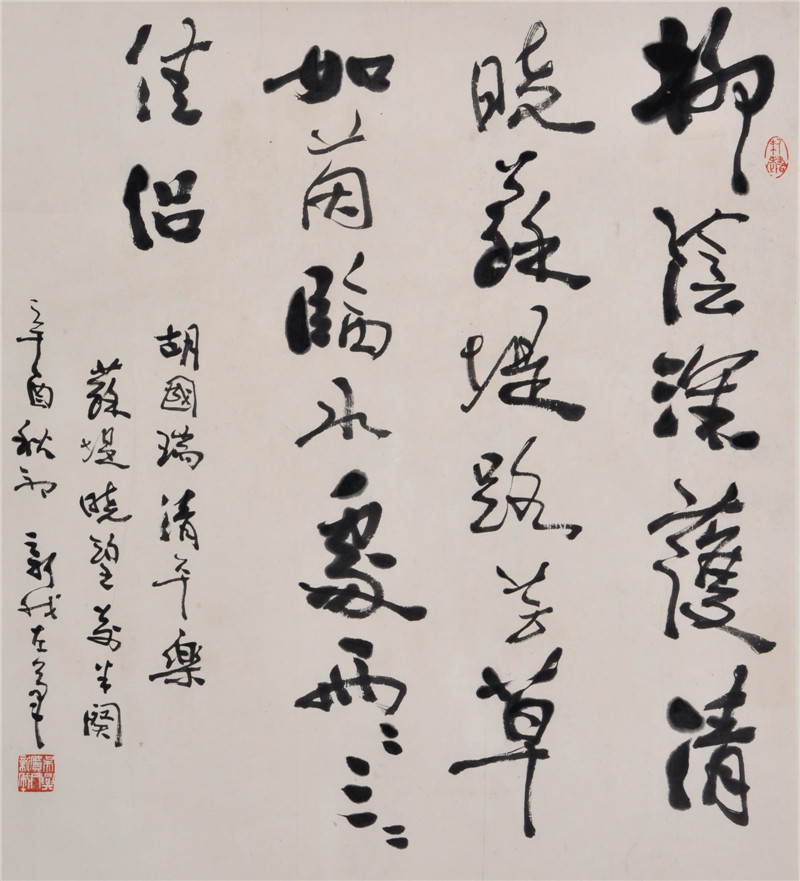 柳蔭深護清
曉蘇堤路芳草
如茵臨水處兩〻三〻
佳侶
胡國瑞清平樂
蘇堤曉望前半闋
辛酉秋初 新我左筆